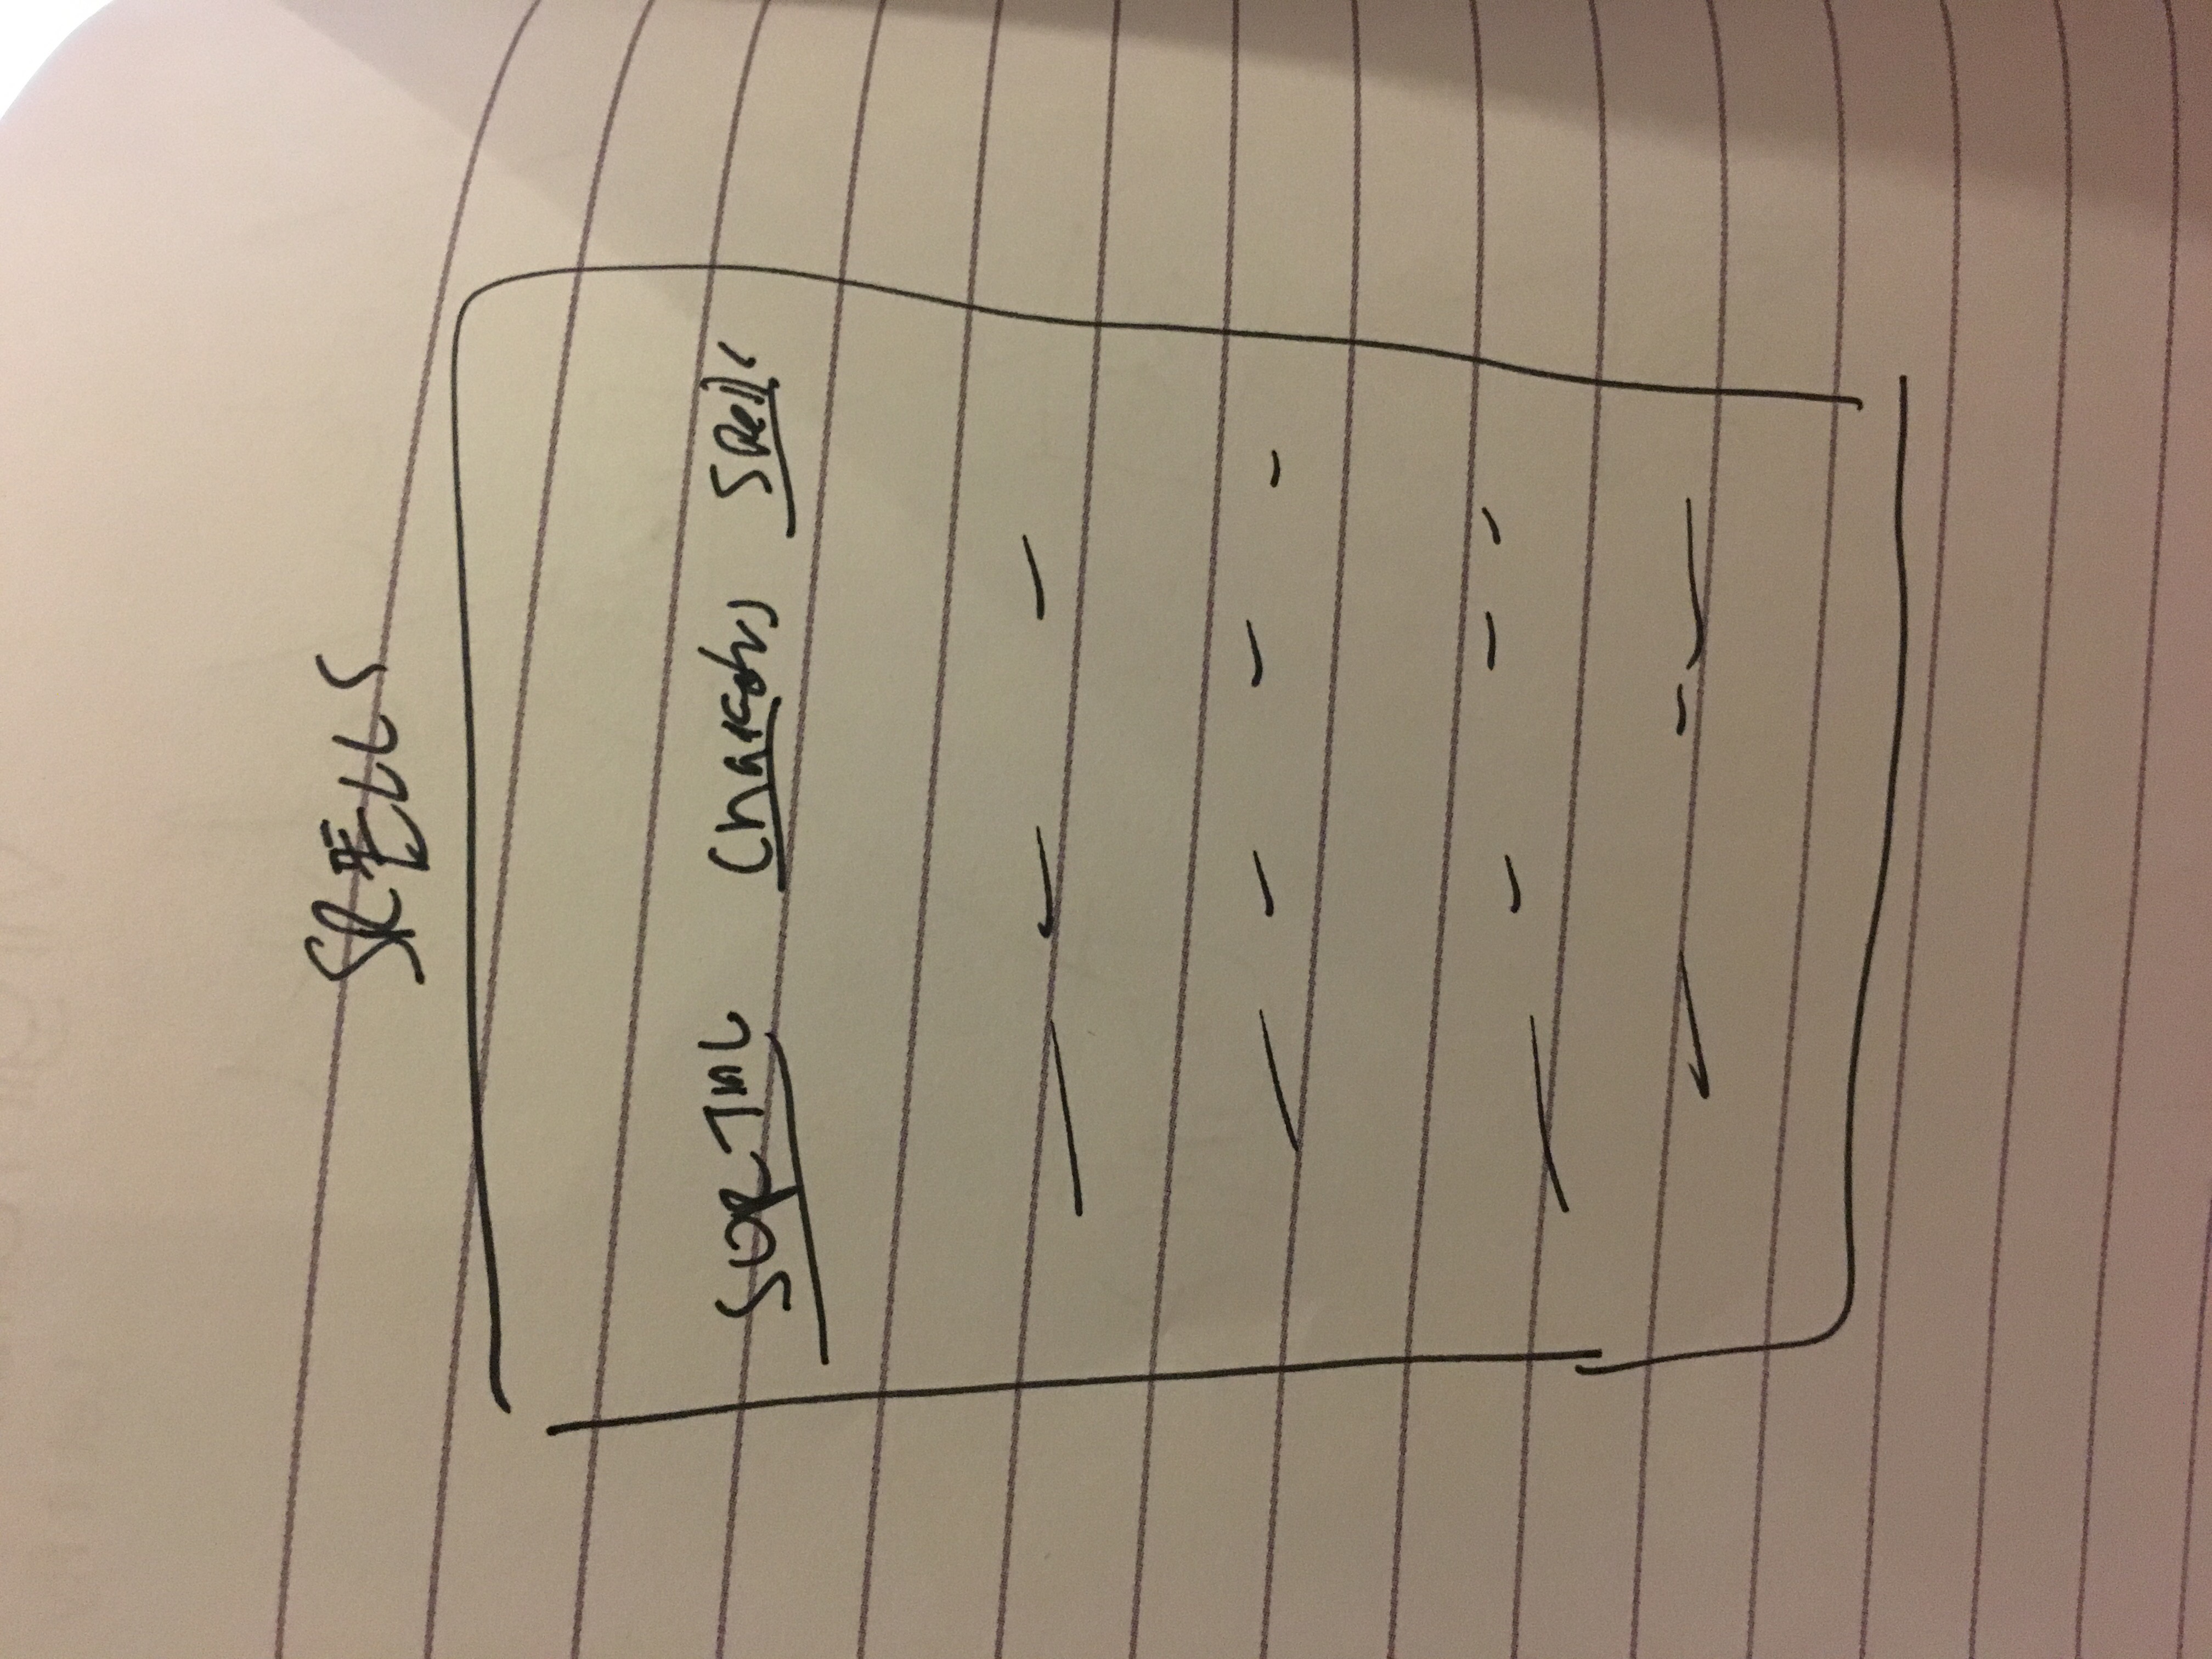 SPELLS
SORTING Characters Spells